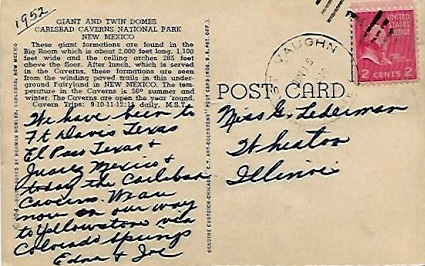 1952
GIANT AND TWIN DOMES
CARLSBAD CAVERNS NATIONAL PARK
NEW MEXICO
These giant formations are found in the
Big Room which is about 2,000 feet long, 1,100
feet wide and the ceiling arches 285 feet
above the floor. After lunch, which is served
in the Caverns, these formations are seen
from the winding paved trails in this under-
ground Fairyland in NEW MEXICO. The tem-
perature in the Caverns is 56° summer and
winter. The Caverns are open the year round.
Cavern Trips: 9-10-11-12:15 daily, M.S.T.
We have been to
Ft Davis Texas
El Paso Texas &
Juarez Mexico &
today the Carlsbad
Caverns. We are
now on our way
to Yellowstone via
Colorado Springs
Edna & Joe
VAUGHN
2 CENTS 2
POST CARD
Miss G. Lederman
Wheaton
Illinois